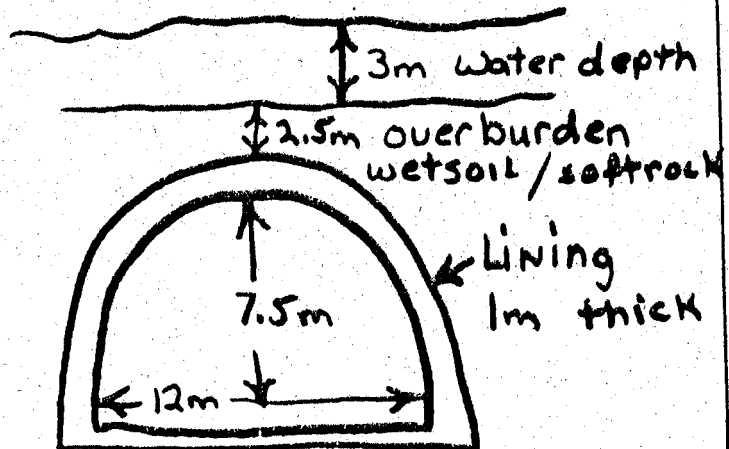 3m water depth
2.5m overburden
wetsoil / softrock
Lining
1m thick
7.5m
12m